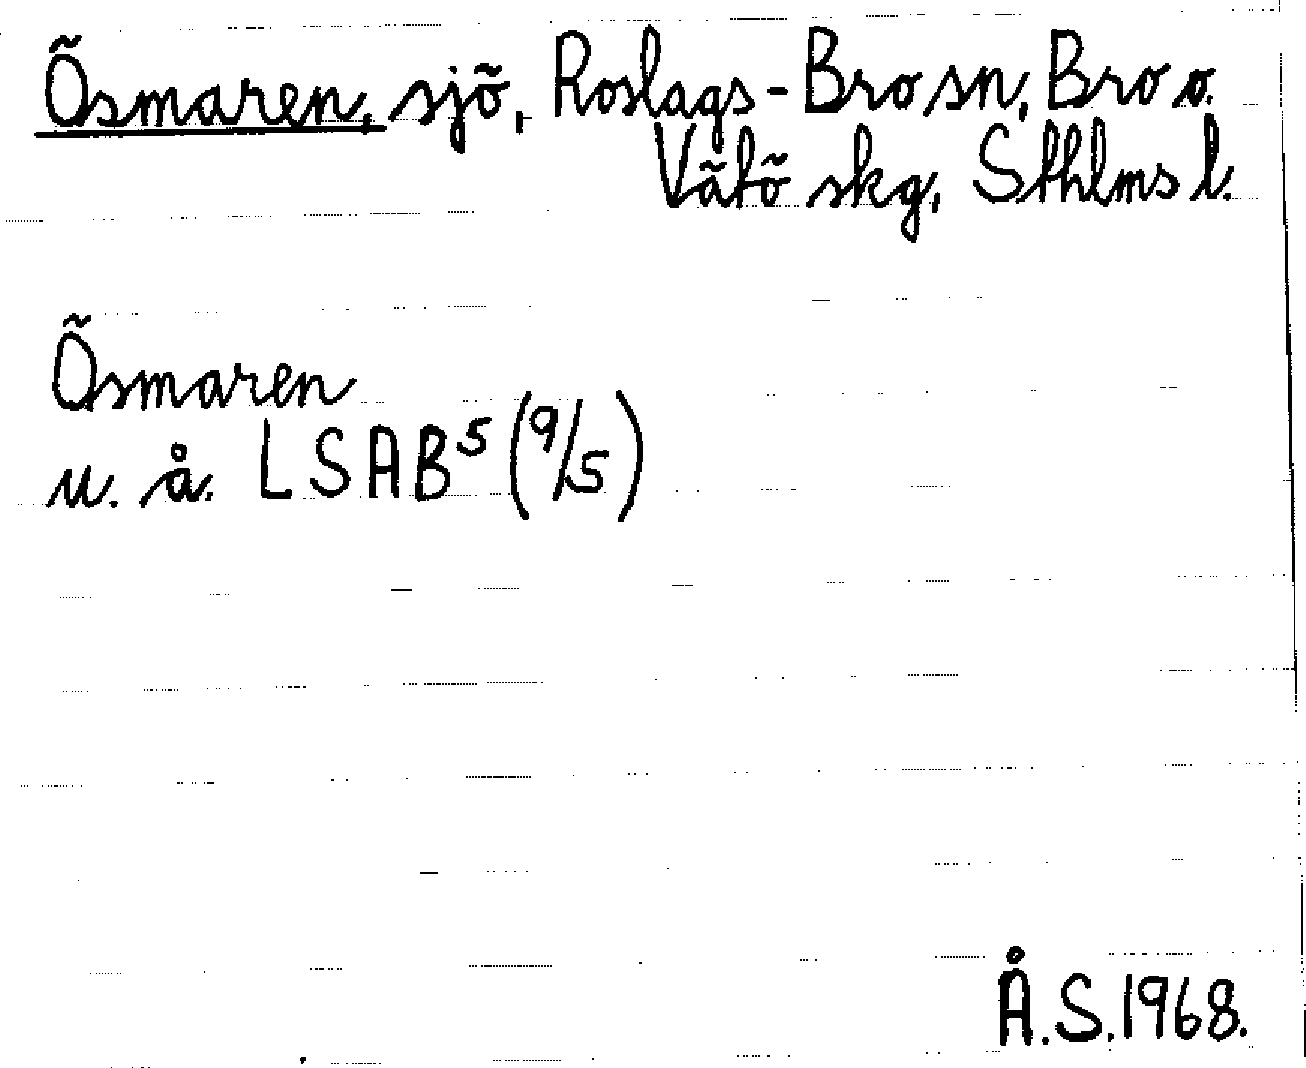 Ösmaren, sjö, Roslags-Bro sn, Bro o.
Vätö skg, Sthlms l.
Ösmaren
u. å. LSAB⁵ (9/5)
Å.S. 1968.